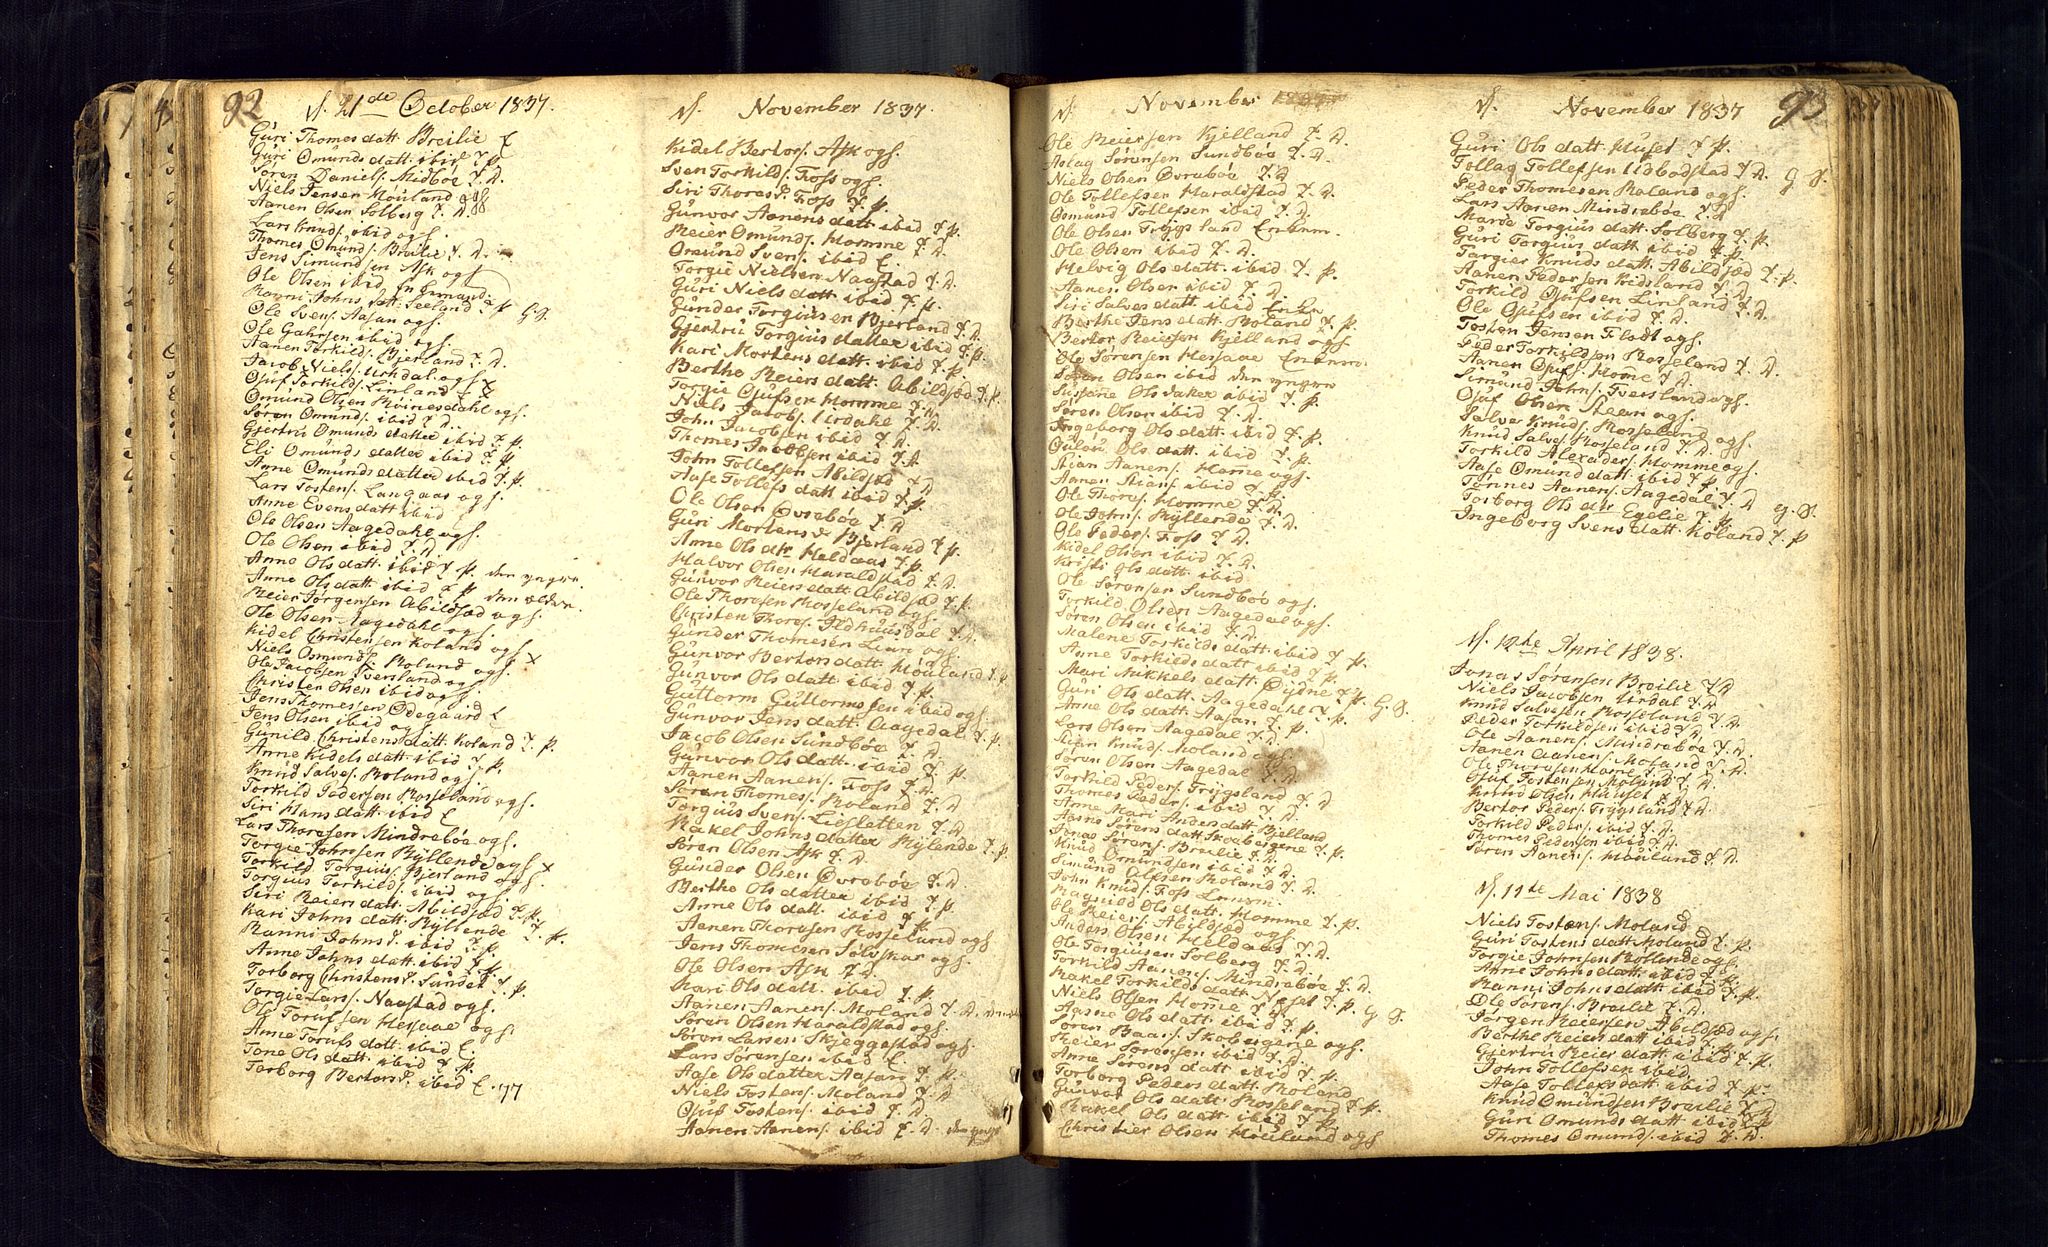 92
d. 21de October 1837.
Guri Thomesdatt Breilie E
Guri Omunds datt ibid J. p.
Søren Daniels. Midbøe J. D.
Niels Jensen Høuland ogs
Aanen Olsen Solberg J. D.
Lars Knuds. ibid ogs.
Thomes Omunds. Breilie J. D.
Jens Simundsen Ask ogs
Ole Olsen ibid
Ranni Johns datt. Seeland J. p G. S.
Ole Svens. Aasan ogs.
Ole Gahrsen ibid ogs.
Aanen Torkilds. Bjerland J. D.
Jacob Niels. Urkdal ogs x
Ojuf Torkilds. Linland E
Omund Olsen Kvinesdahl ogs.
Søren Omunds. ibid J. D.
Gjertru Omunds datter ibid J. p.
Eli Omunds datter ibid J. p
Anne Omundsdatter ibid J. p.
Lars Tostens. Langaas ogs.
Anne Evensdatt ibid
Ole Olsen Aagedahl ogs.
Ole Olsen ibid J. D
Anne Olsdatt. ibid J. p. den yngre
Anne Olsdatt ibid J. p. den ælder.
Reier Jørgensen Abildsæd ogs.
Ole Olsen Aagedahl ogs.
Kidel Christensen Roland ogs x
Niels Osmunds. Roland ogs.
Ole Jacobsen Iversland ogs.
Christen Olsen ibid ogs.
Jens Thomessen Ødegaard E
Jens Olsen ibid ogs.
Gunild Christens datt. Roland J. p.
Anne Kidels datt ibid J. p.
Knud Salves. Roland ogs.
Torkild Pedersen Rosseland ogs.
Siri Hans datt. ibid E
Lars Thorsen Mindrebøe ogs.
Torgie Johnsen Kyllende ogs x
Torkild Torgius. Bjerland ogs.
Torgius Torkilds. ibid ogs.
Siri Reiersdatt. Abildsæd J. p.
Kari Johns datt. Kyllende J. p.
Ranni Johns d. ibid J. p.
Anne Johns datt. ibid J. p.
Torborg Christens d. Sundet J. p.
Torgie Lars. Naastad ogs.
Ole Torufsen Hessaae ogs.
Anne Torufs datt. ibid E.
Tone Ols datt. ibid J. p.
Torborg Bertors d. ibid E. 77
d. November 1837.
Kidel Bertors. Ask ogs.
Sven Torkilds. Foss ogs.
Siri Thores d. Foss J. p.
Gunvor Aanensdatt ibid J. p
Reier Omunds. Homme J. D
Omund Svens. ibid E.
Torgie Nielsen Naastad J. D
Guri Niels datt ibid J. p.
Gunder Torgiussen Bjerland J. D
Gjertru Torgius datter ibid J. p.
Kari Mortens datt. ibid J. p
Berthe Reiers datt. Abildsæd J. p.
Torgie Ojufsen Homme J. D.
Niels Jacobs. Urdahl J. D
John Jacobsen ibid J. D.
Thomes Jacobsen ibid J. D
John Tollefsen Abildsæd J. D
Aase Tollefs datt ibid J. p.
Ole Olsen Øvrebøe J. D
Guri Mortens d. Bjerland J. p.
Anne Ols dtr Heldaas J. p
Halvor Olsen Haraldstad J. D.
Gunvor Reiersdatt Abildsæd J. p
Ole Thorssen Rosseland ogs.
Christen Thors. Ildhuusdal J. D.
Gunder Thomesen Lian ogs.
Gunvor Bertors datt Høuland J. p.
Gunvor Ols datt. ibid J. p.
Guttorm Guttormssen ibid ogs.
Gunvor Jens datt. Aagedal J. p.
Jacob Olsen Sundbøe J. D.
Gunvor Ols datt. ibid J. p.
Aanen Aanens. Foss J. D.
Søren Thomes. Roland J. D
Torgius Svens. Lisletten J. D
Rakel Johns datter Kylende J. p
Søren Olsen Ask J. D
Gunder Olsen Øvrebøe J. D
Berthe Ols datter ibid J. p
Anne Ols datt. ibid J. p
Aanen Thorsen Rosseland ogs
Jens Thomesen Sølvskar ogs.
Ole Olsen Ask J. D.
Kari Ols datt. ibid J. p
Aanen Aanens. Moland J. D.
Søren Olsen Haraldstad ogs.
Søren Larsen Skjeggestad ogs
Lars Sørensen ibid E.
Aase Ols datter Aasan J. p.
Niels Tostens. Moland J. D
Ojuf Tostens. ibid J. D.
Aanen Aanens. ibid J. D. den yngr
d. November 1837
Ole Reiersen Kjelland J. D.
Aslag Sørensen Sundbøe J. D.
Niels Olsen Øvrebøe J. D
Ole Tollefsen Haraldstad J. D.
Osmund Tollefsen ibid J. D.
Ole Olsen Trygsland Enkem.
Ole Olsen ibid J. D.
Helvig Ols datt. ibid J. p.
Aanen Olsen ibid J. D
Siri Salves datt ibid Enken
Berthe Jens datt. Roland J. p.
Bertor Reiersen Kjelland ogs.
Ole Sørensen Hessaae Enkem.
Søren Olsen ibid den yngre
Susanne Ols datter ibid J. p.
Søren Olsen ibid J. D.
Ingeborg Ols datt. ibid J. p.
Gulou Ols datt. ibid J. p.
Stian Aanens. Home ogs.
Aanen Stians. ibid J. D.
Ole Thors. Homme J. D.
Ole Johns. Kyllende J. D.
Ole Peders. Foss J. D.
Kidel Olsen ibid J. D.
Kristi Ols datt. ibid
Ole Sørensen Sundbøe ogs.
Torkild Olsen Aagedal ogs.
Søren Olsen ibid J. D
Malene Torkilds datt. ibid J. p.
Anne Torkilds datt ibid J. p
Mari Mikkels datt. Øidne J. p. G. S.
Guri Ols datt. Aagedahl J. p.
Anne Ols datt. Aasan J. p.
Lars Olsen Aagedal J. D.
Stian Knuds. Moland ogs.
Søren Olsen Aagedal J. D.
Torkild Peders. Trygsland J. D
Thomes Peders. ibid J. D.
Anne Mari Anders datt Bjelland
Aasne Sørens datt Skoebergene J. p.
Jonas Sørens. Breilie J. D.
Knud Omundsen ibid J. D.
Simund Olsen Roland J. D.
John Knuds. Foss Lensm.
Ragnild Ols datt. Homme J. p.
Ole Reiers. Abildsæd ogs.
Anders Olsen Heldaas J. D
Ole Torgiusen Solberg J. D.
Torkild Aanens. Mindrebøe J. D.
Rakel Torkilds datt. Neset J. p. G S.
Niels Olsen Home J. D
Aasne Ols datt. ibid J. p.
Søren Baars. Skobergene ogs.
Reier Sørensen ibid J. D.
Anne Sørens datt. ibid J. p.
Torborg Peders datt. Roland
Gunvor Ols datt. Rosseland J. p.
Rakel Ols datt. ibid J. p.
Christier Olsen Høiland ogs
93
d. November 1837
Guri Ols datt. Huset J. p.
Tollag Tollefsen Udbodstad J. D G. S.
Peder Thomesen Roland ogs.
Lars Aanen Mindrebøe J. D
Marie Torgius datt. Solberg J. p.
Guri Torgius datt. ibid J. p.
Torgier Knuds datt. Abildsæd J. p.
Aanen Pedersen Kidsland J. D
Torkild Ojufsen Linland J. D.
Ole Ojufsen ibid J. D.
Tosten Jensen Flodt ogs.
Peder Torkildsen Rosseland J. D.
Aanen Ojufs. Home J. D.
Simund Johns. Tversland ogs.
Ojuf Olsen Steen ogs.
Salve Knuds. Rosseland ogs.
Knud Salves. Rosseland J. D.
Torkild Alexanders. Homme ogs.
Aase Omunds datt. ibid J. p.
Tønnes Aanens. Aagedal J. D G. S.
Torborg Ols dtr Egelie J. p.
Ingeborg Svensdatt Roland J. p
d. 12the April 1838.
Jonas Sørensen Breilie J. D
Niels Jacobsen Urdal J. D.
Knud Salvesen Rosseland J. D.
Peder Torkildsen ibid J. D
Ole Aanens. Mindrebøe J. D
Aanen Aanens. Moland J. D.
Ole Thorsen Home J. D.
Ojuf Tostensen Moland J. D.
Knud Olsen Huuset J. D.
Bertor Peders. Trygsland J. D.
Torkild Peders. ibid J. D.
Thomes Pedersen ibid J. D
Søren Aanens. Høuland J. D.
d. 11te Mai 1838
Niels Tostens. Moland
Guri Tostens datt. Moland J. p.
Torgie Johnsen Kyllende ogs.
Anne Johns datt. ibid J. p.
Ranni Johns datt ibid J. p.
Ole Sørens. Breilie J. D.
Jørgen Reiersen Abildsæd ogs.
Berthe Reiers datt. ibid J. p.
Gjertru Reiers datt. ibid J. p.
John Tollefsen ibid.
Aase Tollefsdatt ibid J. p
Knud Omundsen Breilie J. D
Guri Omunds datt ibid J. p
Thomes Omunds. ibid J. D.